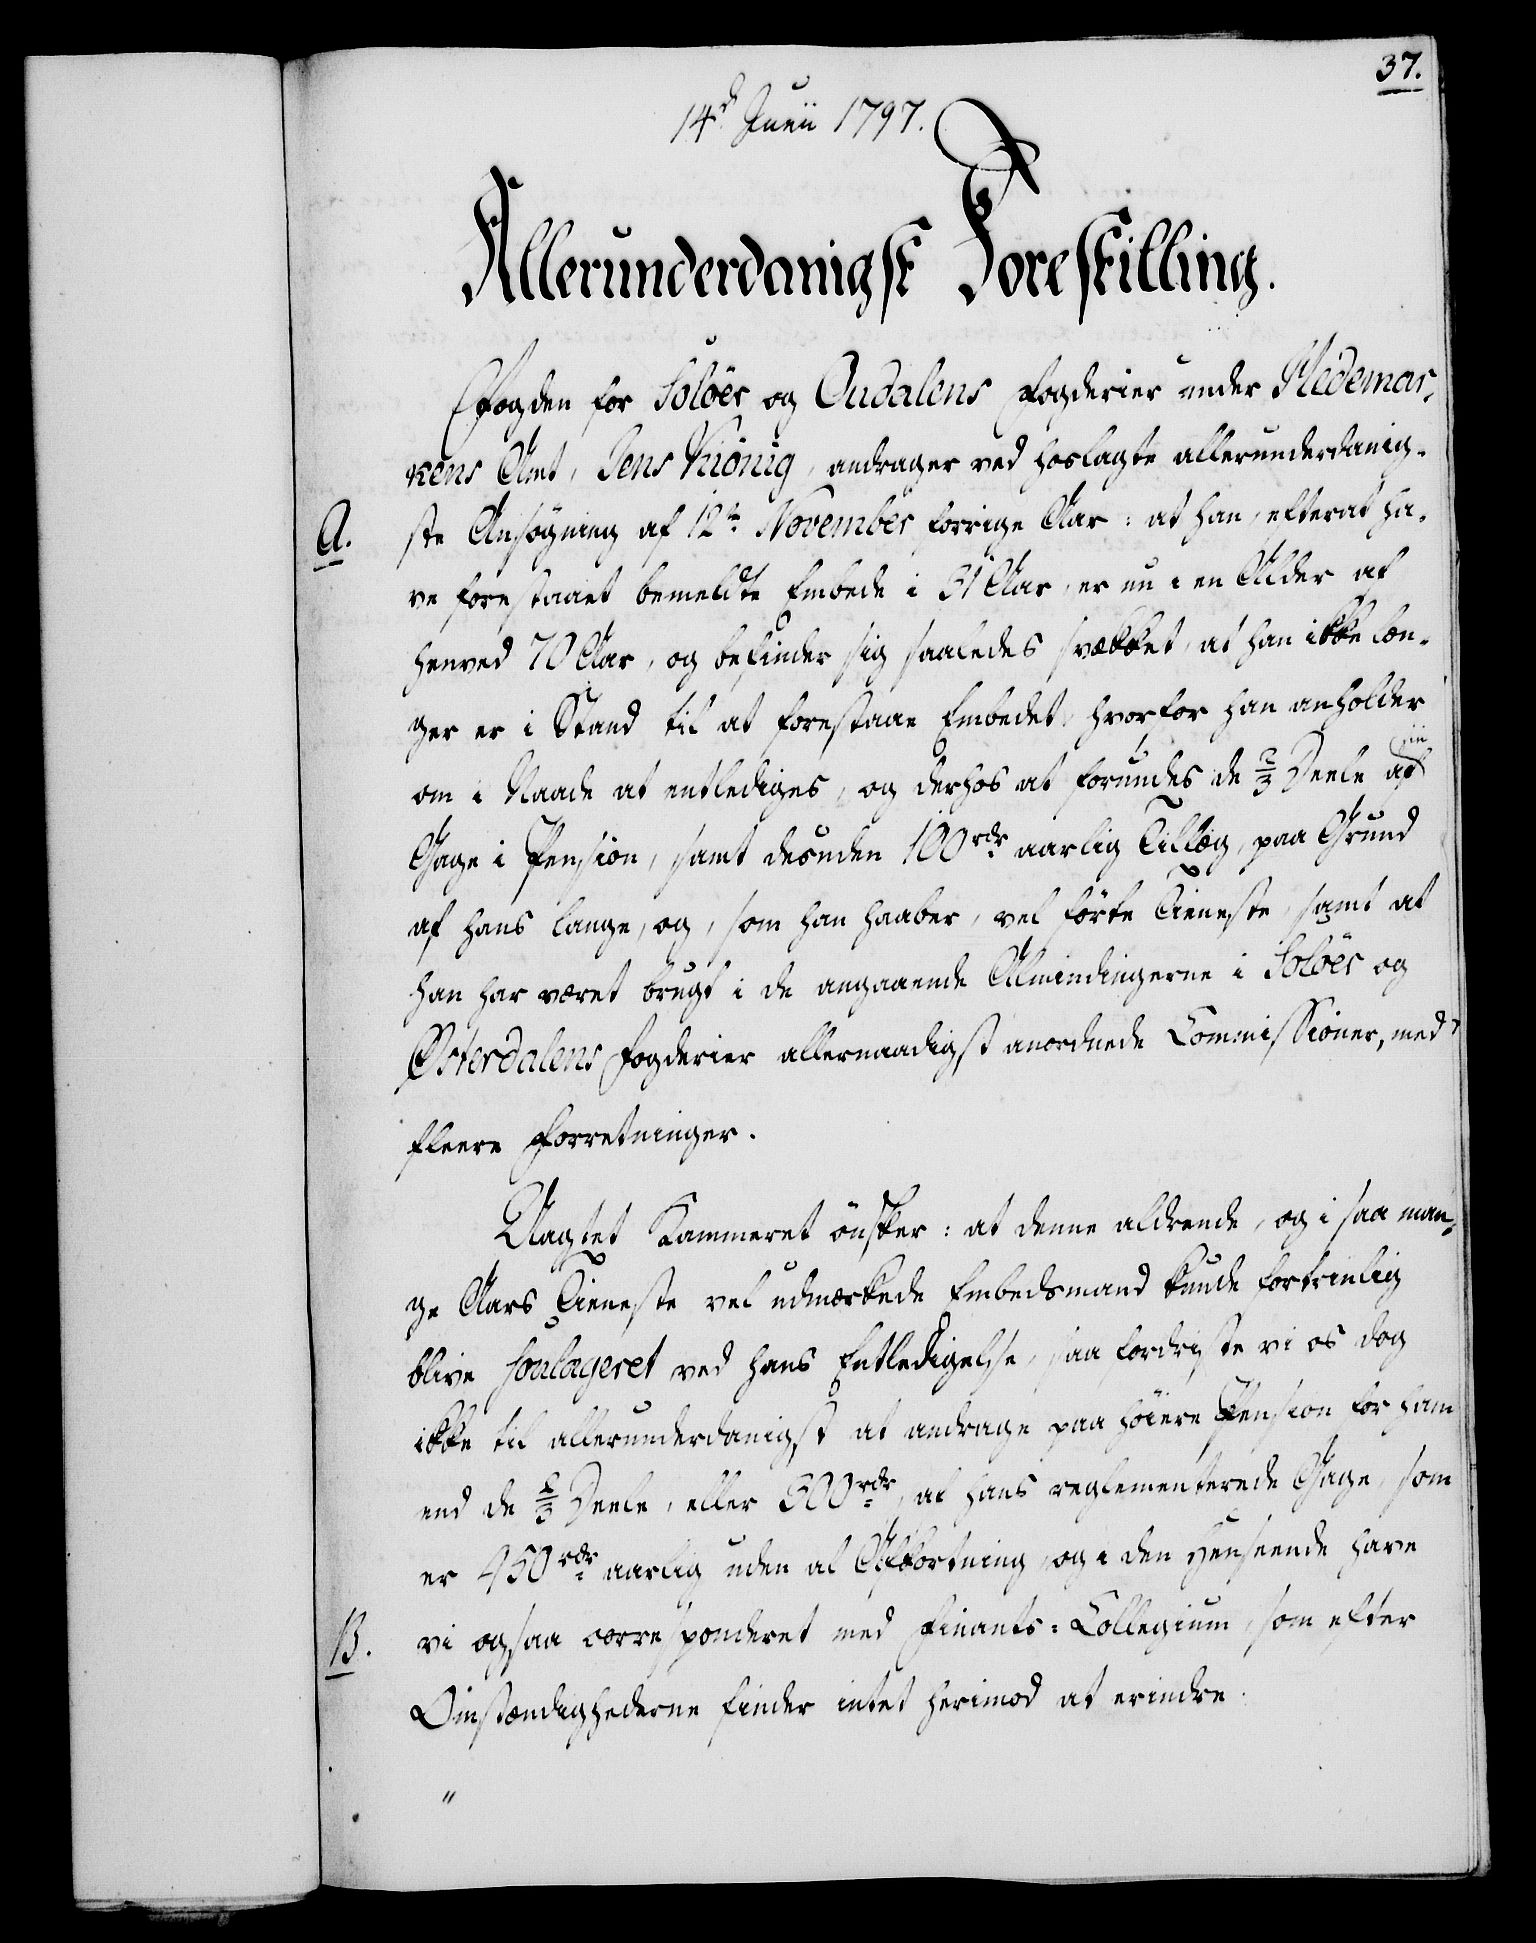 37.
14de Junii 1797.
Allerunderdanigst Forestilling.
Fogden for Solöer og Oudalens Fogderier under Hedemar-
kens Amt, Jens Kiönig, andrager ved hoslagte allerunderdanig-
A. ste Ansögning af 12te November forrige Aar: at han, efterat ha-
ve forestaaet bemeldte Embede i 31 Aar, er nu i en Alder af
henved 70 Aar, og befinder sig saaledes svækket, at han ikke læn-
ger er i Stand til at forestaae Embedet, hvorfor han anholder
om i Naade at entlediges, og derhos at forundes de 2/3 Deele af sin
Gage i Pension, samt desuden 100 rdr aarlig Tillæg, paa Grund
af hans lange, og, som han haaber, vel förte Tieneste, samt at
han har været brugt i de angaaende Almindingerne i Solöer og
Österdalens Fogderier allernaadigst anordnede Commissioner, med
fleere Forretninger.
Uagtet Kammeret önsker: at denne aldrende, og i saa man-
ge Aars Tieneste vel udmærkede Embedsmand kunde fortrinlig
blive soulageret ved hans Entledigelse, saa fordriste vi os dog
ikke til allerunderdanigst at andrage paa höiere Pension for ham
end de 2/3 Deele, eller 300 rdr, af hans reglementerede Gage, som
er 450 rdr aarlig uden al Afkortning, og i den Henseende have
B. vi ogsaa correspponderet med Finants-Collegium, som efter
Omstændighederne finder intet herimod at erindre.
"